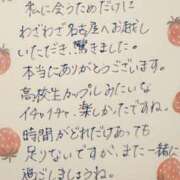 私に会うためだけに
わざわざ名古屋へお越し
いただき、驚きました。
本当にありがとうございます。
高校生カップルみたいな
イチャイチャ、楽しかったですね。
時間がどれだけあっても
足りないですが、また一緒に
過ごしましょうね